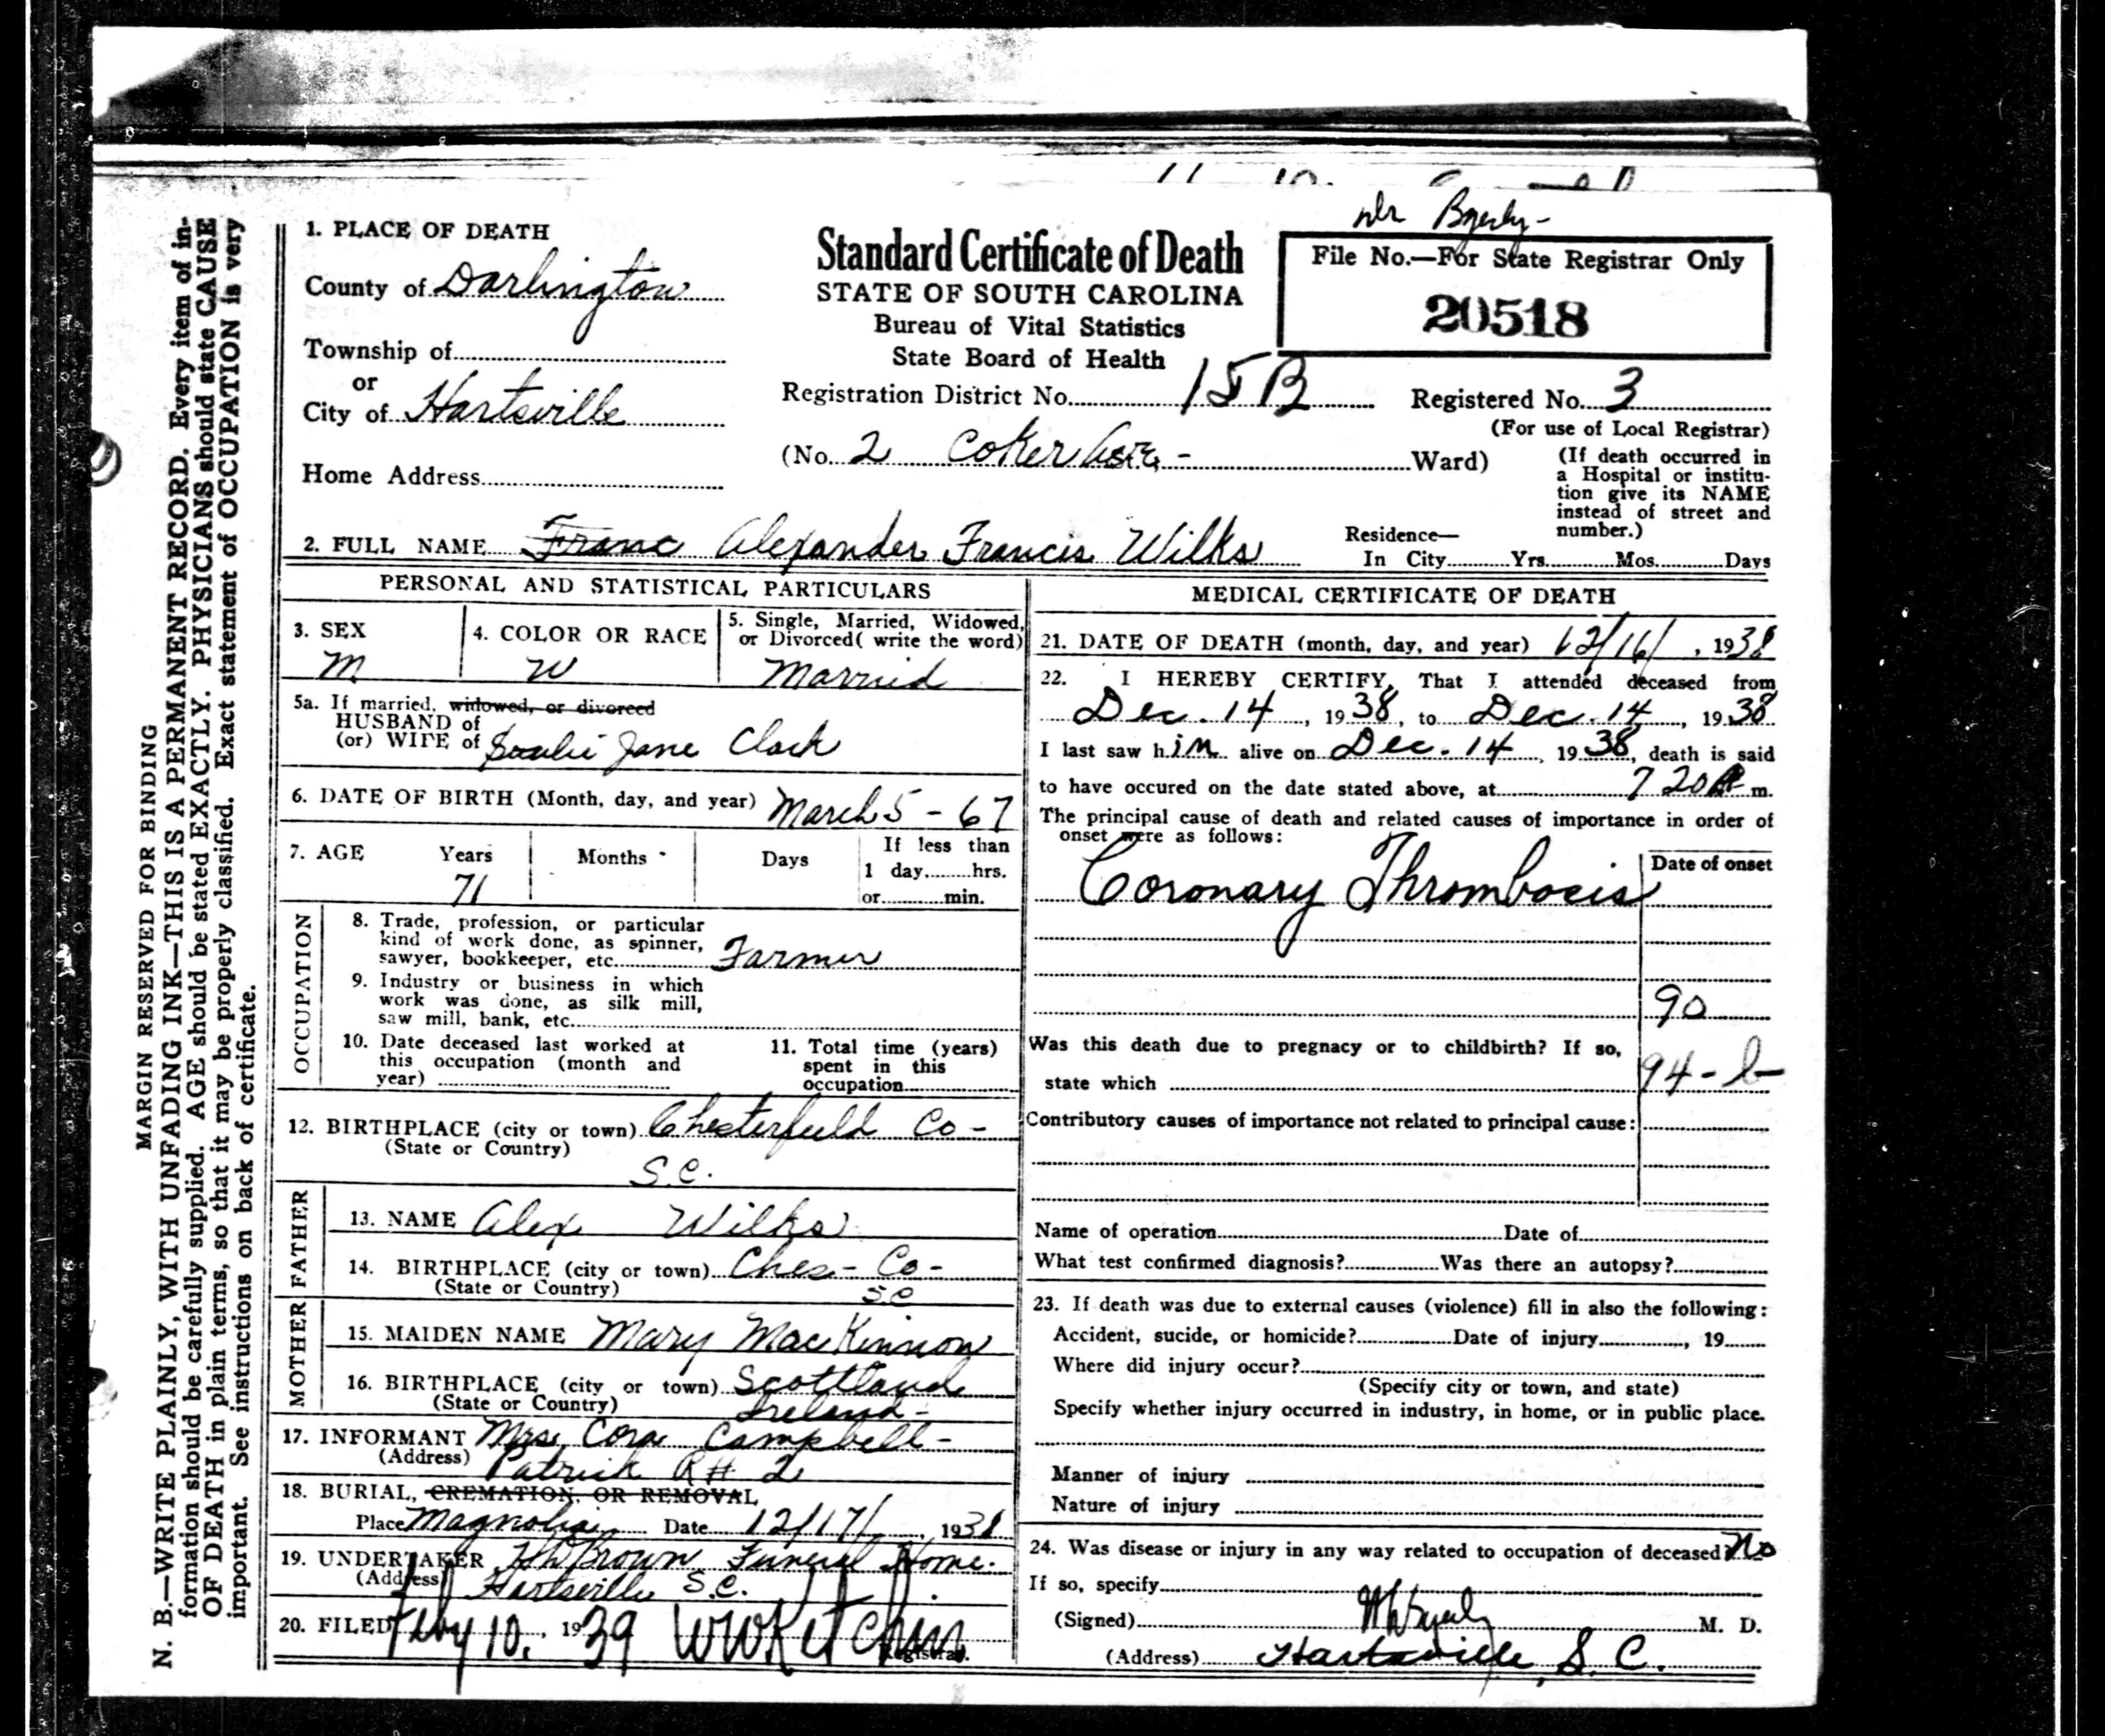 Dr Byerly-
1. PLACE OF DEATH
County of Darlington
Township of
or
City of Hartsville
Home Address
Standard Certificate of Death
STATE OF SOUTH CAROLINA
Bureau of Vital Statistics
State Board of Health
File No.—For State Registrar Only
20518
Registration District No. 15B
Registered No. 3
(For use of Local Registrar)
(No. 2 Coker Ward)
(If death occurred in
a Hospital or institu-
tion give its NAME
instead of street and
number.)
2. FULL NAME Franc Alexander Francis Wilks
Residence—
In City Yrs. Mos. Days
PERSONAL AND STATISTICAL PARTICULARS
3. SEX
M
4. COLOR OR RACE
W
5. Single, Married, Widowed,
or Divorced( write the word)
Married
5a. If married, widowed, or divorced
HUSBAND of
(or) WIFE of Jane Clark
6. DATE OF BIRTH (Month, day, and year) March 5 - 67
7. AGE Years Months Days
71
If less than
1 day, hrs.
or min.
OCCUPATION
8. Trade, profession, or particular
kind of work done, as spinner,
sawyer, bookkeeper, etc. Farmer
9. Industry or business in which
work was done, as silk mill,
saw mill, bank, etc.
10. Date deceased last worked at
this occupation (month and
year)
11. Total time (years)
spent in this
occupation
12. BIRTHPLACE (city or town) Chesterfield Co-
(State or Country)
S.C.
FATHER
13. NAME Alex Wilks
14. BIRTHPLACE (city or town) Ches- Co-
(State or Country) SC
MOTHER
15. MAIDEN NAME Mary MacKinnon
16. BIRTHPLACE (city or town) Scottland
(State or Country) Ireland-
17. INFORMANT Mrs. Cora Campbell-
(Address) Patrick R# 2
18. BURIAL, CREMATION, OR REMOVAL
Place Magnolia Date 12/17/, 1938
19. UNDERTAKER Brown Funeral Home.
(Address) Hartsville S.C.
20. FILED Feby 10, 1939 WWKetchin
Registrar.
MEDICAL CERTIFICATE OF DEATH
21. DATE OF DEATH (month, day, and year) 12/16/, 1938
22. I HEREBY CERTIFY, That I attended deceased from
Dec. 14, 1938, to Dec. 14, 1938.
I last saw him alive on Dec. 14, 1938, death is said
to have occured on the date stated above, at 7 20 m.
The principal cause of death and related causes of importance in order of
onset were as follows:
Date of onset
Coronary Thrombosis
90
Was this death due to pregnacy or to childbirth? If so,
state which
94-b
Contributory causes of importance not related to principal cause:
Name of operation Date of
What test confirmed diagnosis? Was there an autopsy?
23. If death was due to external causes (violence) fill in also the following:
Accident, sucide, or homicide? Date of injury, 19
Where did injury occur?
(Specify city or town, and state)
Specify whether injury occurred in industry, in home, or in public place.
Manner of injury
Nature of injury
24. Was disease or injury in any way related to occupation of deceased? No
If so, specify
(Signed) Byerly M. D.
(Address) Hartsville, S. C.
MARGIN RESERVED FOR BINDING
N. B.—WRITE PLAINLY, WITH UNFADING INK—THIS IS A PERMANENT RECORD. Every item of in-
formation should be carefully supplied. AGE should be stated EXACTLY. PHYSICIANS should state CAUSE
OF DEATH in plain terms, so that it may be properly classified. Exact statement of OCCUPATION is very
important. See instructions on back of certificate.